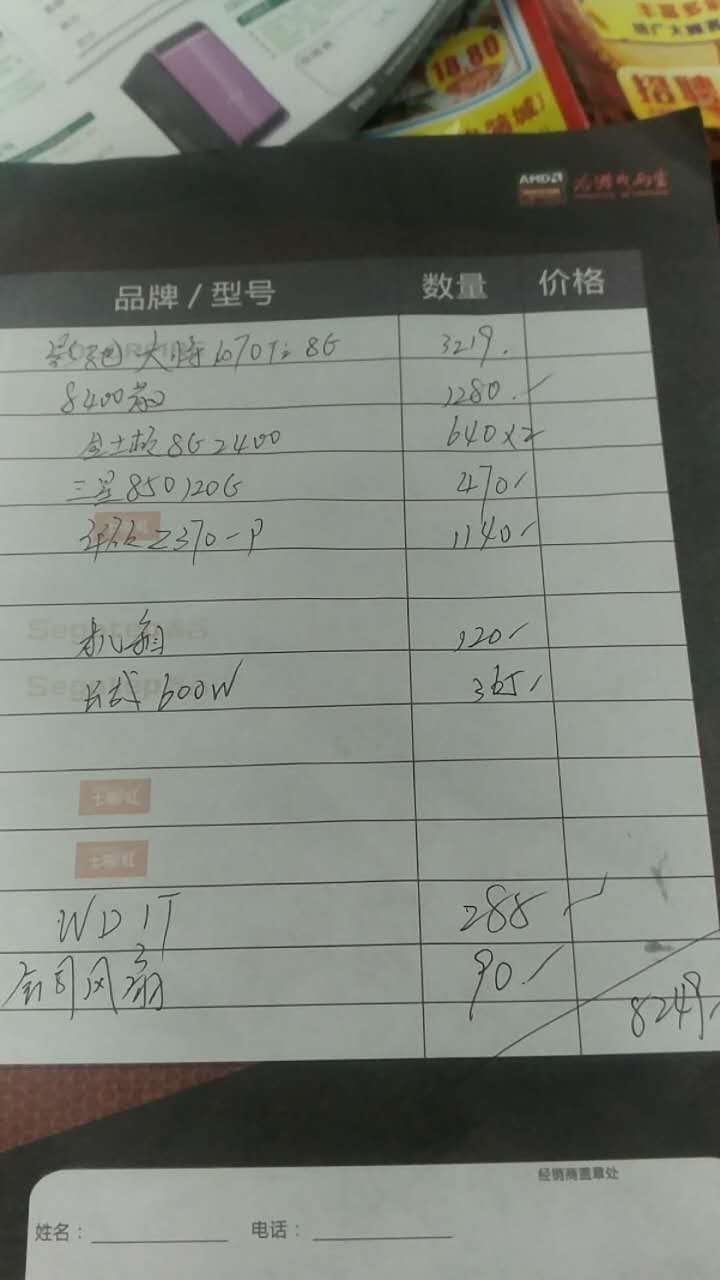 18.80
招聘
AMD
品牌 / 型号 数量 价格
大将 1070Ti 8G 3219.
8400散 1280.
金士顿 8G 2400 640×2
三星 850 120G 470
Z370-P 1140
机箱 120
长城 600W 365
七彩虹
七彩虹
WD 1T 288
风扇 90.
8249
经销商盖章处
姓名： 电话：